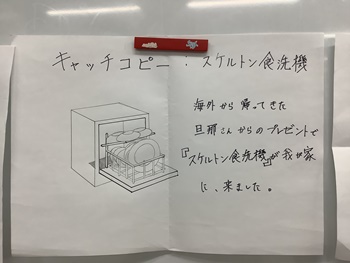 キャッチコピー：スケルトン食洗機
海外から帰ってきた
旦那さんからのプレゼントで
『スケルトン食洗機』が我が家
に、来ました。